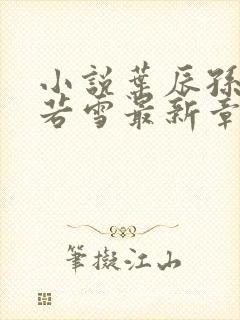 小說葉辰孫
若雪最新章
筆擬江山